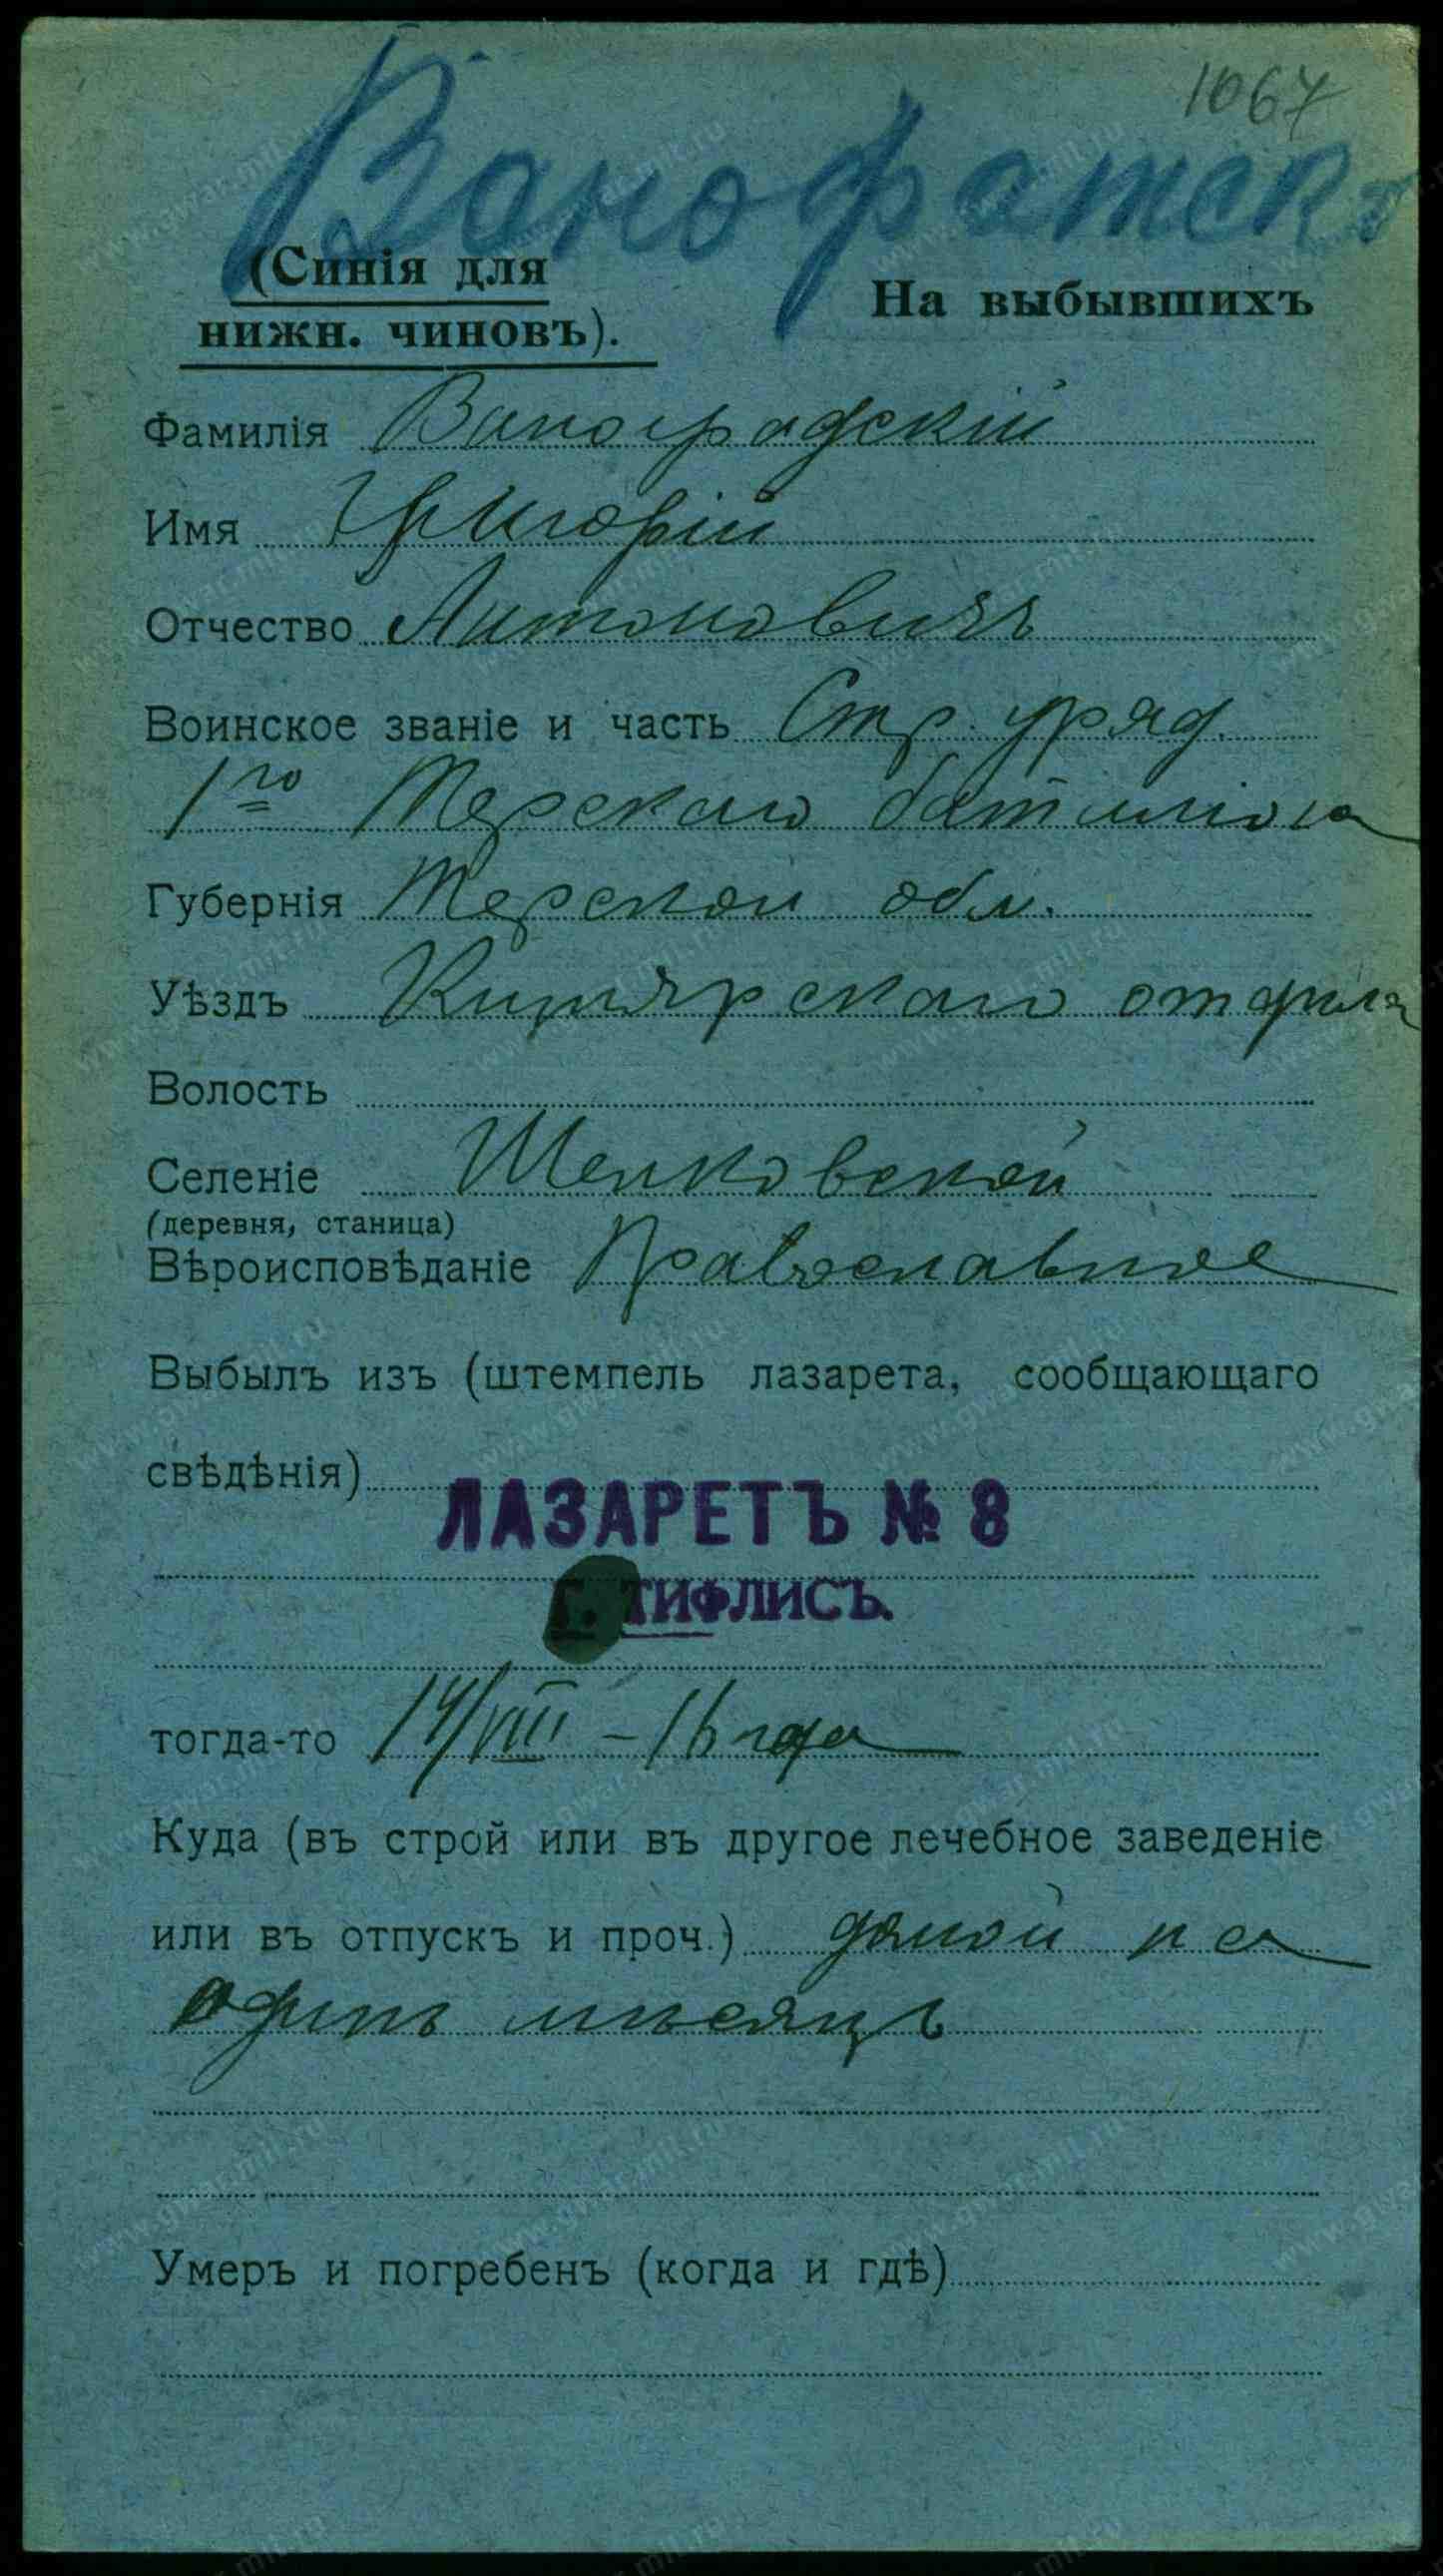 1067
Ванофатск
(Синія для
нижн. чиновъ).
На выбывшихъ
Фамилія Ваноградскій
Имя Григорій
Отчество Антоновичъ
Воинское званіе и часть Ст. уряд.
1го Терскаго баталіона
Губернія Терской обл.
Уѣздъ Кизлярскаго отдѣла
Волость
Селеніе Шелковской
(деревня, станица)
Вѣроисповѣданіе Православное
Выбылъ изъ (штемпель лазарета, сообщающаго
свѣдѣнія)
ЛАЗАРЕТЪ № 8
Г. ТИФЛИСЪ.
тогда-то 14/VIII – 16 года
Куда (въ строй или въ другое лечебное заведеніе
или въ отпускъ и проч.) домой на
одинъ мѣсяцъ
Умеръ и погребенъ (когда и гдѣ)
www.gwar.mil.ru